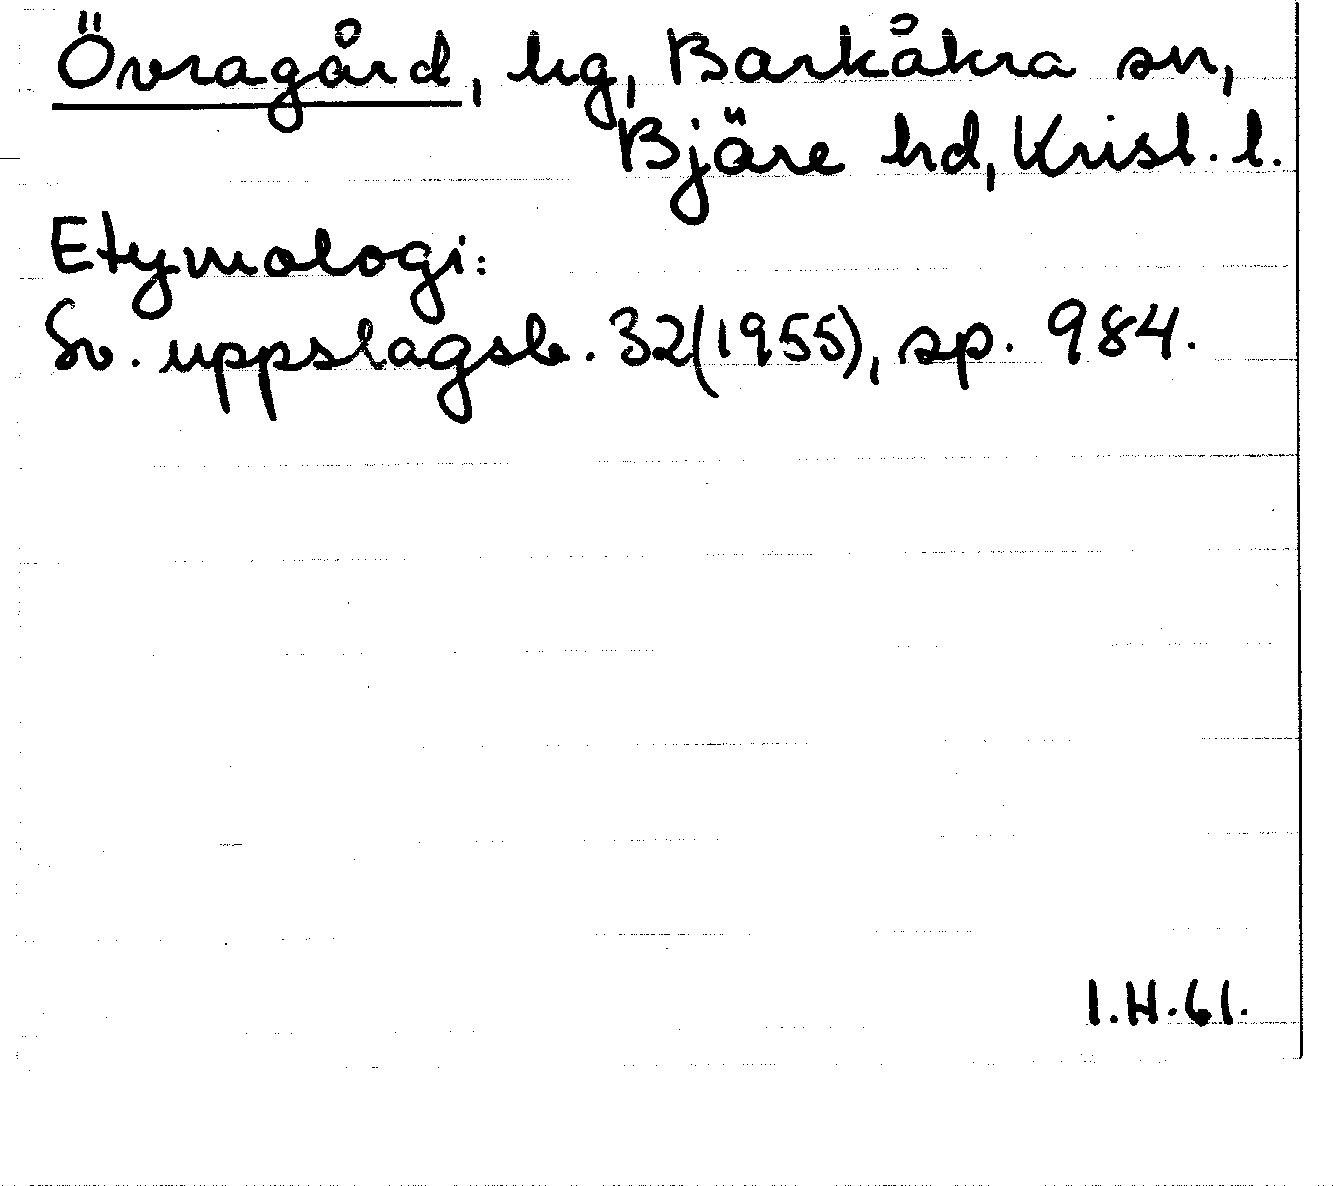 Övragård, hg, Barkåkra sn,
Bjäre hd, Krist. l.
Etymologi:
Sv. uppslagsb. 32(1955), sp. 984.
I.H.61.